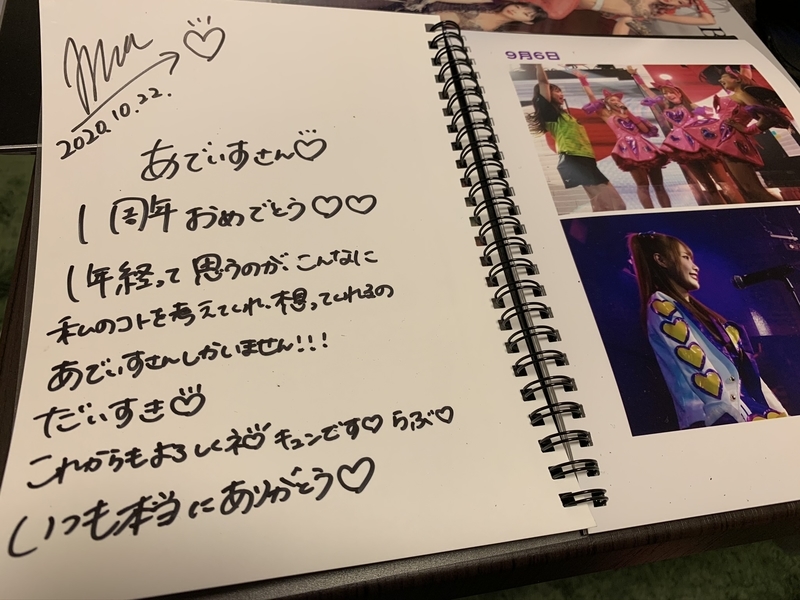 Mia♡
2020.10.22.
あでぃすさん♡
1周年おめでとう♡♡
1年経って思うのが、こんなに
私のコトを考えてくれ、想ってくれるの
あでぃすさんしかいません!!!
だいすき♡
これからもよろしくネ♡キュンです♡らぶ♡
いつも本当にありがとう♡
9月6日